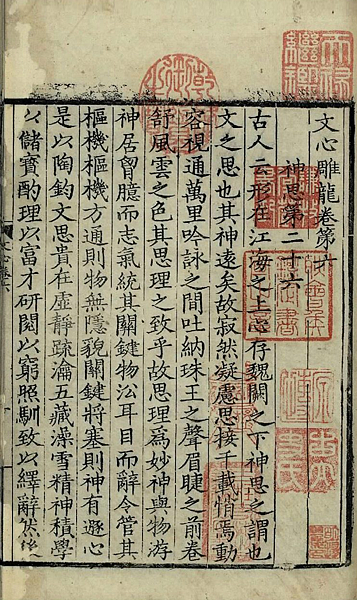 文心雕龍卷第六
神思第二十六
古人云形在江海之上心存魏闕之下神思之謂也
文之思也其神遠矣故寂然凝慮思接千載悄焉動
容視通萬里吟詠之間吐納珠玉之聲眉睫之前卷
舒風雲之色其思理之致乎故思理爲妙神與物游
神居胷臆而志氣統其關鍵物沿耳目而辭令管其
樞機樞機方通則物無隱貌關鍵將塞則神有遯心
是以陶鈞文思貴在虛靜疏瀹五藏澡雪精神積學
以儲寳酌理以富才研閱以窮照馴致以繹辭然後